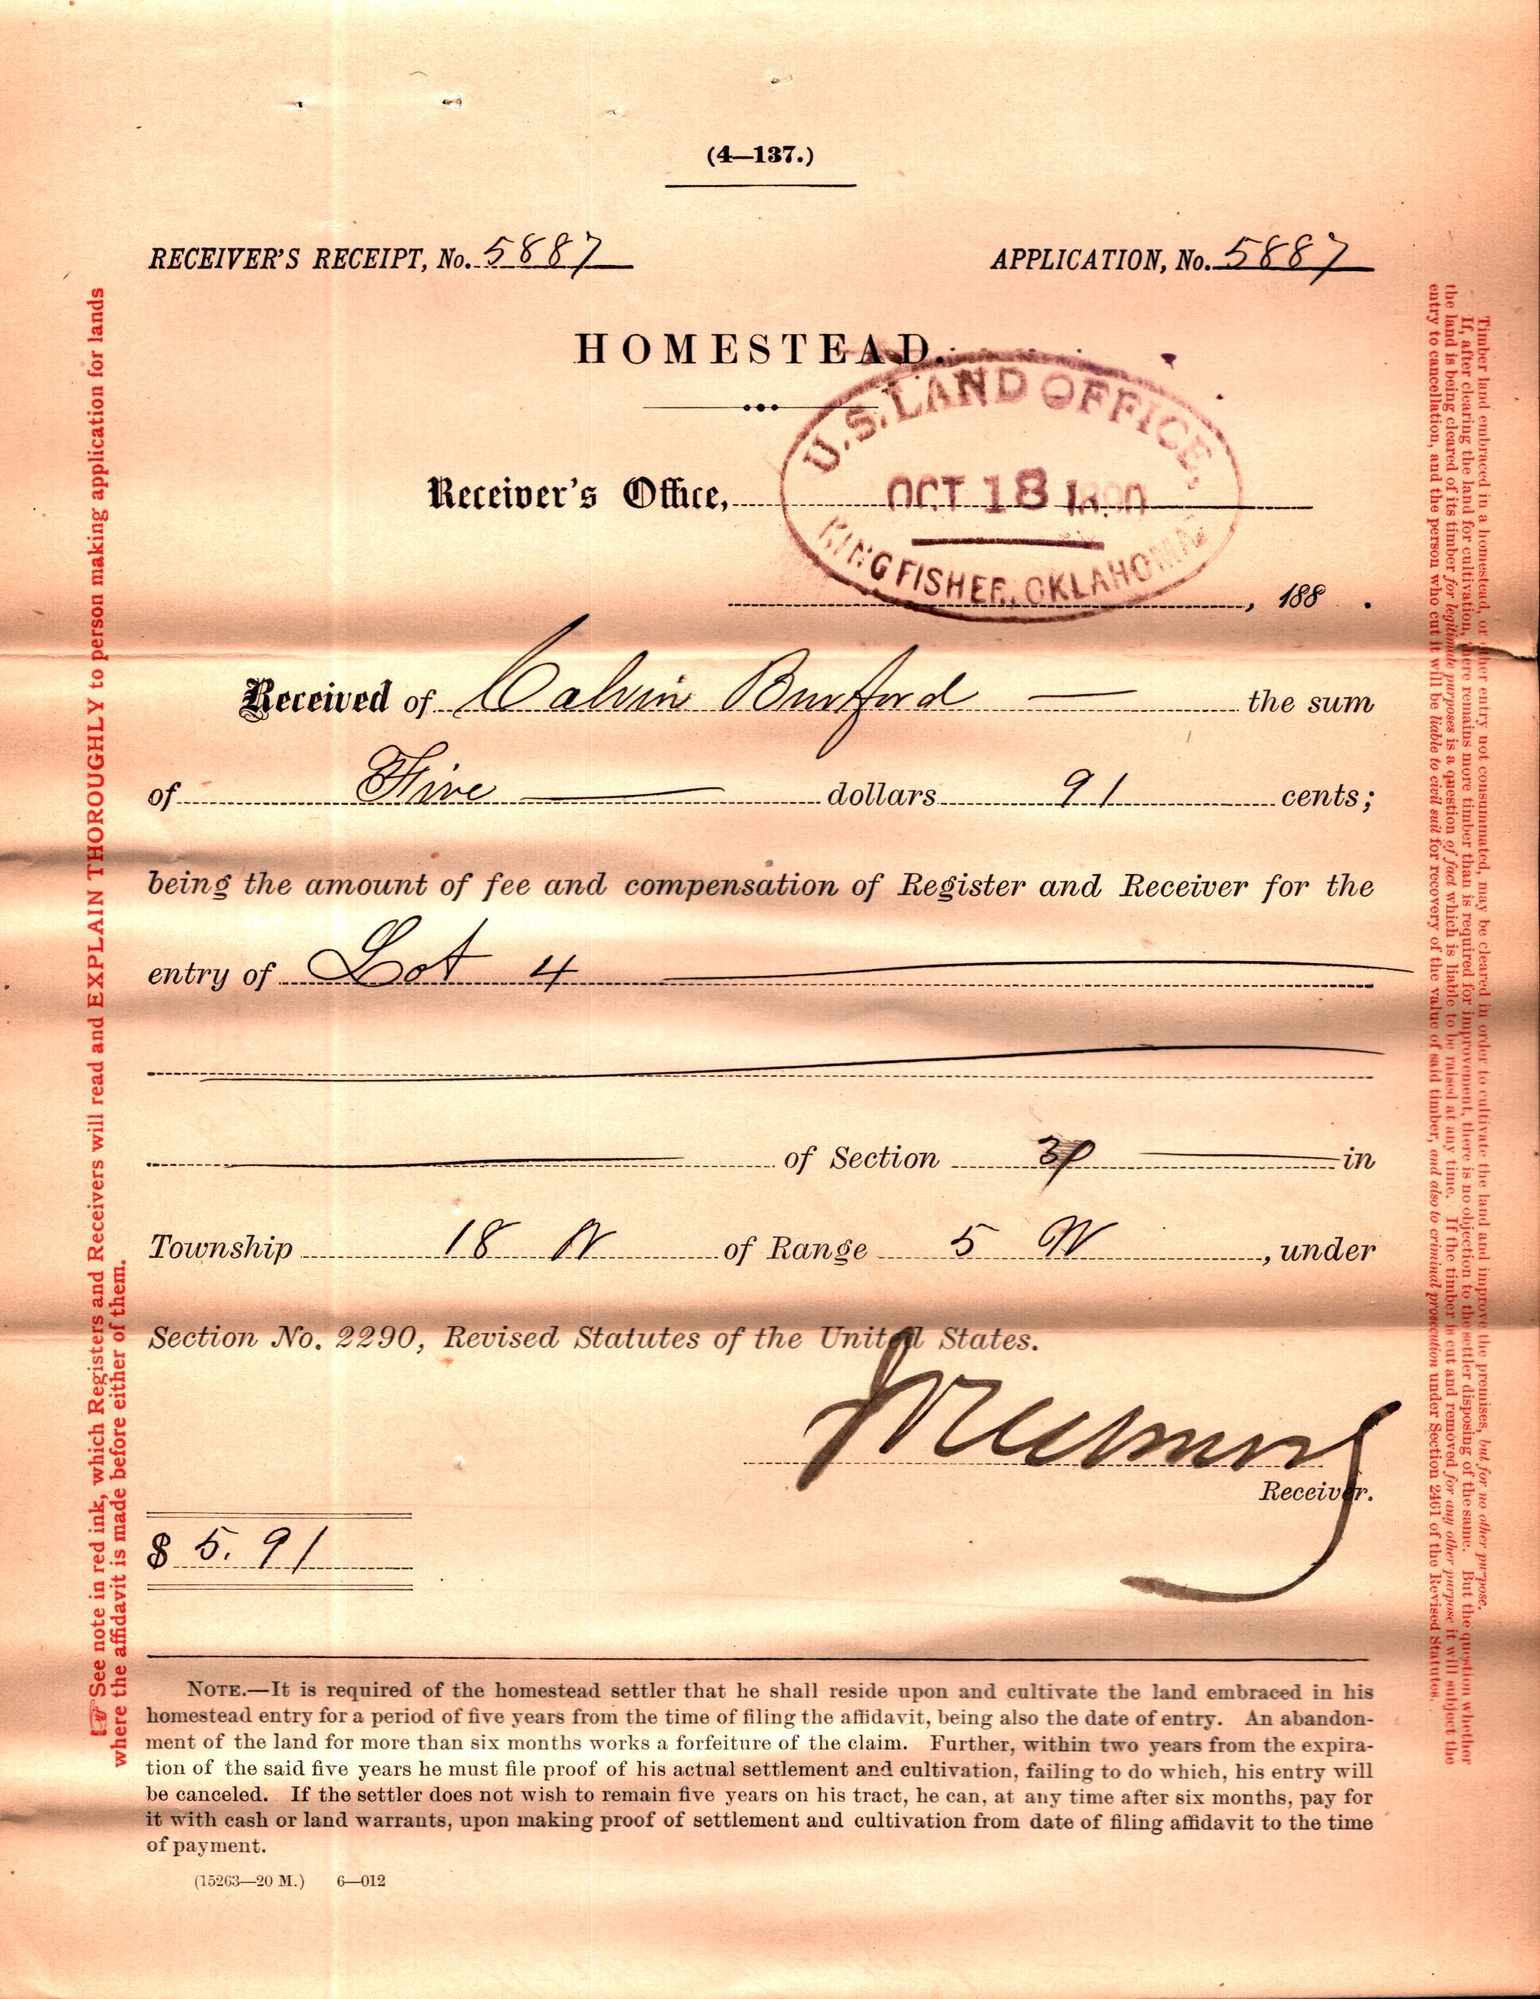 (4—137.)
RECEIVER'S RECEIPT, No. 5887
APPLICATION, No. 5887
HOMESTEAD.
U.S. LAND OFFICE,
OCT 18 1890
KINGFISHER, OKLAHOMA
Receiver's Office,
, 188 .
Received of Calvin Burford the sum
of Five dollars 91 cents;
being the amount of fee and compensation of Register and Receiver for the
entry of Lot 4
of Section 30 in
Township 18 N of Range 5 W, under
Section No. 2290, Revised Statutes of the United States.
Receiver.
$ 5.91
NOTE.—It is required of the homestead settler that he shall reside upon and cultivate the land embraced in his
homestead entry for a period of five years from the time of filing the affidavit, being also the date of entry. An abandon-
ment of the land for more than six months works a forfeiture of the claim. Further, within two years from the expira-
tion of the said five years he must file proof of his actual settlement and cultivation, failing to do which, his entry will
be canceled. If the settler does not wish to remain five years on his tract, he can, at any time after six months, pay for
it with cash or land warrants, upon making proof of settlement and cultivation from date of filing affidavit to the time
of payment.
(15263—20 M.) 6—012
☞See note in red ink, which Registers and Receivers will read and EXPLAIN THOROUGHLY to person making application for lands
where the affidavit is made before either of them.
Timber land embraced in a homestead, or other entry not consummated, may be cleared in order to cultivate the land and improve the premises, but for no other purpose.
If, after clearing the land for cultivation, there remains more timber than is required for improvement, there is no objection to the settler disposing of the same. But the question whether
the land is being cleared of its timber for legitimate purposes is a question of fact which is liable to be raised at any time. If the timber is cut and removed for any other purpose it will subject the
entry to cancellation, and the person who cut it will be liable to civil suit for recovery of the value of said timber, and also to criminal prosecution under Section 2461 of the Revised Statutes.